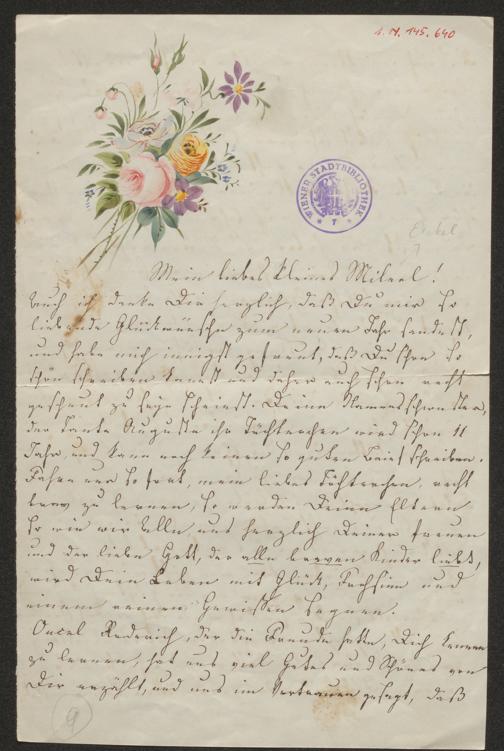 I. N. 145.640
WIENER STADTBIBLIOTHEK
7
Enkel
?
Mein liebes kleines !
Auch ich danke Dir herzlich, daß Du mir so
liebende Glückwünsche zum neuen Jahr sendest,
und habe mich innigst gefreut, daß Du schon so
schön schreiben kannst und daher auch schon recht
gescheut zu seyn scheinst. Deine Namensschwester,
der Tante Auguste ihr Töchterchen wird schon 11
Jahr, und kann noch keinen so guten Brief schreiben.
Fahre nur so fort, mein liebes Töchterchen, recht
brav zu lernen, so werden Deine Eltern
so wie wir Alle uns herzlich Deiner freuen
und der liebe Gott, der alle braven Kinder liebt,
wird Dein Leben mit Glück, Frohsinn und
einem reinen Gewissen segnen.
Onkel , der die Freude hatte, Dich kennen
zu lernen, hat uns viel Gutes und Schönes von
Dir erzählt, und uns im Vertrauen gesagt, daß
9